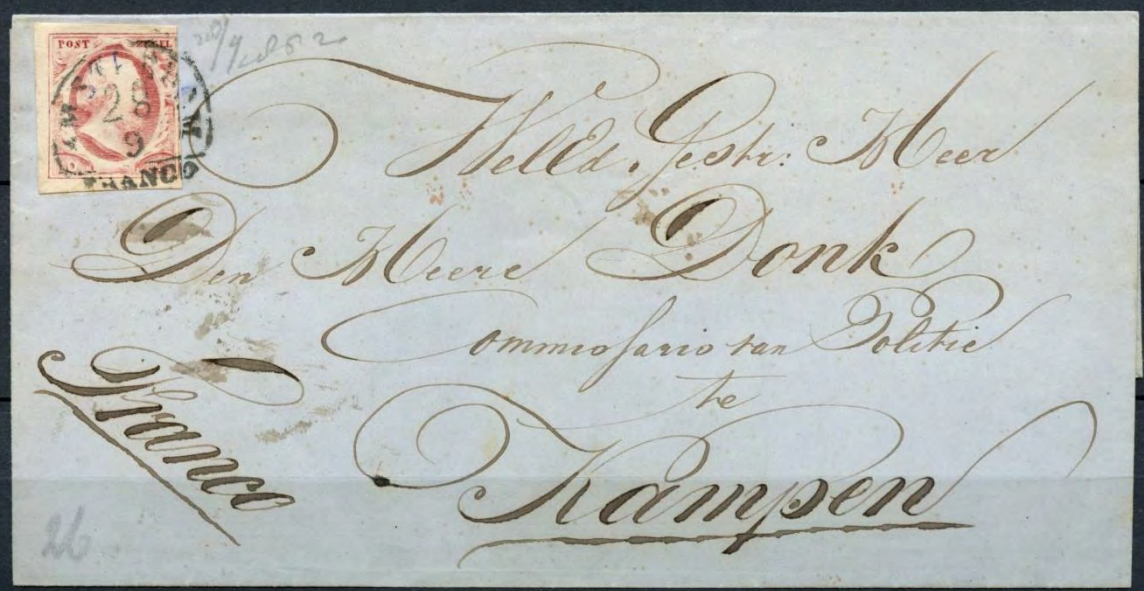 POST ZEGEL
AMSTERDAM
28
9
FRANCO
WelEd. Gestr: Heer
Den Heere Donk
Commissaris van Politie
te
Kampen
Franco
26